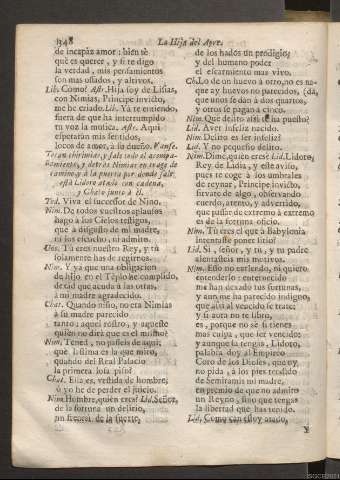 348 La Hija del Ayre.
de incapàz amor: bien sè
què es querer, y si te digo
la verdad, mis pensamientos
son mas osados, y altivos.
Lib. Como? Ast. Hija soy de Lisias,
con Nimias, Principe invicto,
me he criado. Lib. Yà te entiendo,
fuera de que ha interrumpido
tu voz la musica. Astr. Aqui
esperaràn mis sentidos,
locos de amor, à su dueño. Vanse.
Tocan chirimias, y sale todo el acompa-
ñamiento, y detràs Nimias en trage de
camino, y à la puerta por donde sale
està Lidoro atado con cadena,
y Chato junto à èl.
Tod. Viva el successor de Nino.
Nim. De todos vuestros aplausos
hago à los Cielos testigos,
que à disgusto de mi madre,
ni los escucho, ni admito.
Uno. Tù eres nuestro Rey, y tù
solamente has de regirnos.
Nim. Y yà que una obligacion
de hijo en el Titulo he cumplido,
dezid que acuda à las otras,
à mi madre agradecido.
Chat. Quando niño, no era Nimias
à su madre parecido
tanto: aquel rostro, y aqueste
quien no dirà que es el mismo?
Nim. Tened, no passeis de aqui;
què lastima es la que miro,
quando del Real Palacio
la primera losa piso?
Chat. Ella es, vestida de hombre,
ò yo he de perder el juicio.
Nim. Hombre, quien eres? Lid. Señor,
de la fortuna un delirio,
un frenesì de la suerte,
de los hados un prodigio,
y del humano poder
el escarmiento mas vivo.
Ch. Lo de un huevo à otro, no es na-
que ay huevos no parecidos, (da,
que unos se dàn à dos quartos,
y otros se pagan à cinco.
Nim. Què delito assi te ha puesto?
Lid. Aver infeliz nacido.
Nim. Delito es ser infeliz?
Lid. Y no pequeño delito.
Nim. Dime, quien eres? Lid. Lidoro,
Rey de Lidia, y este aviso,
pues te coge à los umbrales
de reynar, Principe invicto,
sirvate de algo, observando
cuerdo, atento, y advertido,
que passar de extremo à extremo
es de la fortuna oficio.
Nim. Tù eres el que à Babylonia
intentaste poner sitio?
Lid. Sì, señor, y tù, y tu padre
alentasteis mis motivos.
Nim. Esso no entiendo, ni quiero
entenderlo: enternecido
me han dexado tus fortunas,
y aun me ha parecido indigno,
que assi al vencido se trate;
y si aora no te libro,
es, porque no sè si tienes
mas culpa, que ser vencido:
y aunque la tengas, Lidoro,
palabra doy al Empireo
Coro de los Dioses, que oy,
no pida, à los pies rendido
de Semiramis mi madre,
en premio de que no admito
un Reyno, sino que tengas
la libertad que has tenido.
Lid. Como tan estoy atado,